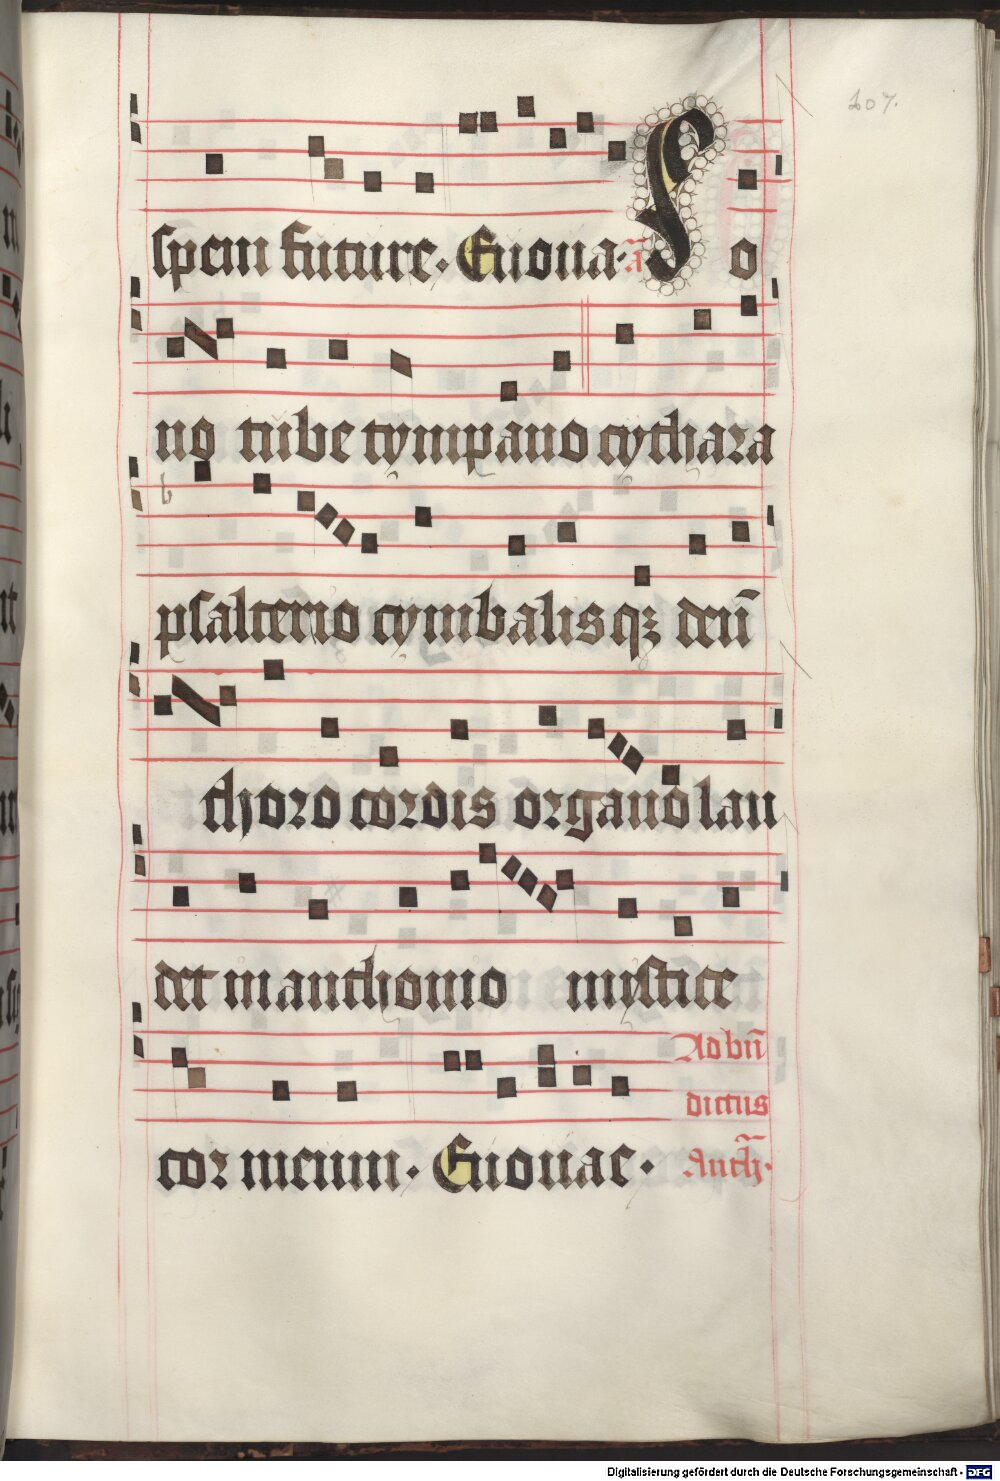 207.
spem future. Euoua. a͞ So
no tube tympano cythara
psalterio cymbalisqꝫ deū
thoro cordis organo lau
det in anthonio mystice
Ad bn̄
dictus
cor meum. Euouae. Anth̄.
Digitalisierung gefördert durch die Deutsche Forschungsgemeinschaft - DFG